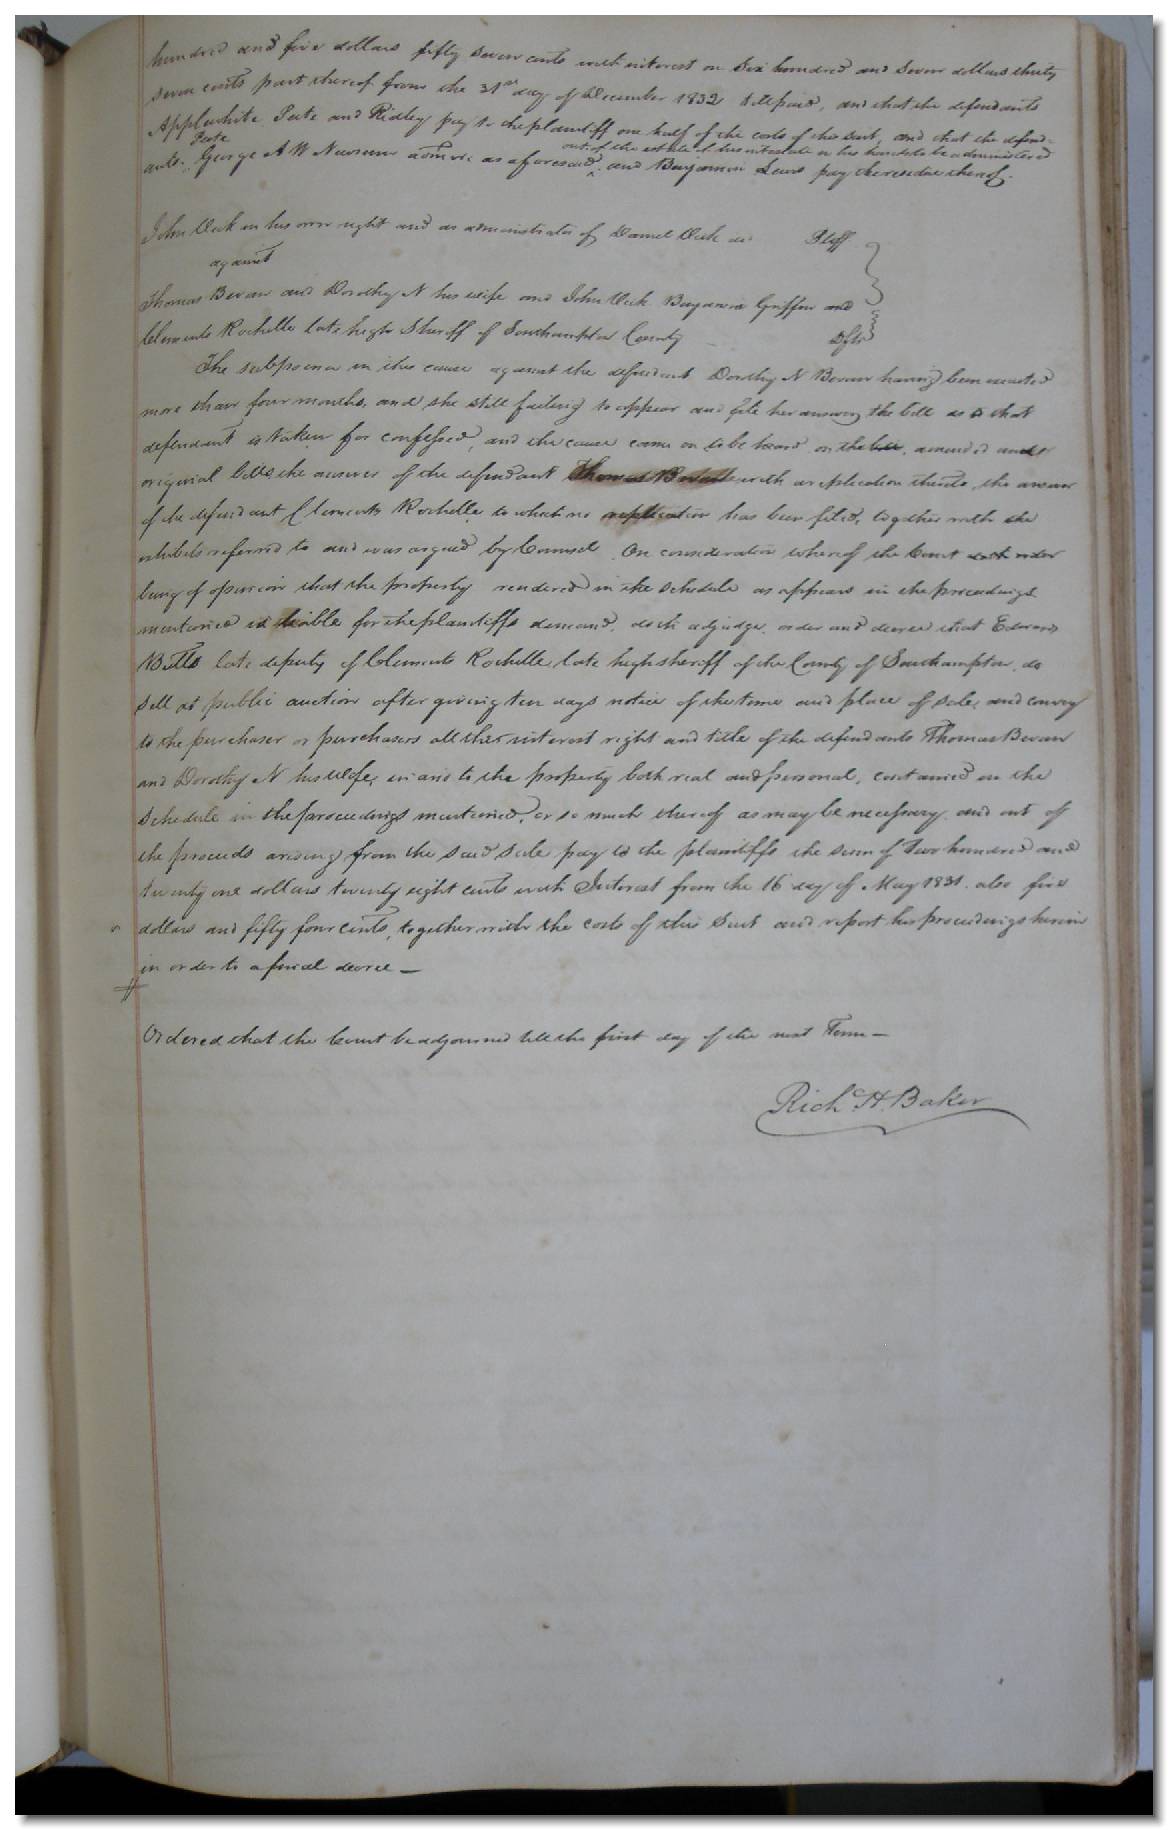 hundred and five dollars fifty seven cents with interest on Six hundred and Seven dollars thirty
seven cents part thereof from the 31st day of December 1832 till paid, and that the defendants
Applewhite Pate and Ridley pay to the plaintiff one half of the costs of this suit, and that the defend-
Pate
out of the estate of his intestate in his hands to be administered
ants George A W Newsum admor &c as aforesaid, and Benjamin Lewis pay the residue thereof.
John Vick in his own right and as administrator of Daniel Vick de Pltff
against
Thomas Bevan and Dorothy N his wife and John Vick Benjamin Griffin and
Clements Rochelle late high Sheriff of Southampton County Dfts
The subpoena in this cause against the defendant Dorothy N Bevan having been executed
more than four months, and she still failing to appear and file her answer, the bill as to that
defendant is taken for confessed, and the cause came on to be heard on the bill, amended and
original bills, the answer of the defendant Thomas Bevan with replication thereto, the answer
of the defendant Clements Rochelle to which no replication has been filed, together with the
exhibits referred to and was argued by Counsel. On consideration whereof the Court doth order
being of opinion that the property rendered in the Schedule as appears in the proceedings
mentioned is liable for the plaintiffs demand, doth adjudge, order and decree that Edward
Butts late deputy of Clements Rochelle, late high sheriff of the County of Southampton, do
sell at public auction after giving ten days notice of the time and place of sale, and convey
to the purchaser or purchasers all the interest right and title of the defendants Thomas Bevan
and Dorothy N his Wife, in and to the property both real and personal, contained in the
Schedule in the proceedings mentioned, or so much thereof as may be necessary and out of
the proceeds arising from the said sale pay to the plaintiffs the sum of Two hundred and
twenty one dollars twenty eight cents with Interest from the 16 day of May 1831. also five
dollars and fifty four cents, together with the costs of this Suit and report his proceedings herein
in order to a final decree —
Ordered that the Court be adjourned till the first day of the next Term —
Rich H. Baker